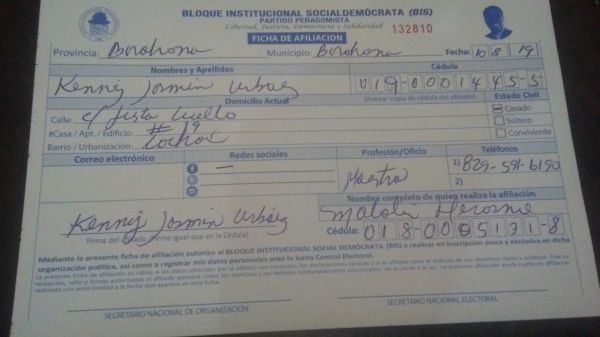 BLOQUE INSTITUCIONAL SOCIALDEMÓCRATA (BIS)
PARTIDO PEÑAGOMISTA
Libertad, Justicia, Democracia y Solidaridad
FICHA DE AFILIACION 132810
Provincia: Barahona Municipio: Barahona Fecha: 10 8 19
Nombres y Apellidos Cédula
Kennij Jasmin Urbaez 019-0001445-5
Domicilio Actual (Anexar copia de cédula del afiliado) Estado Civil
Calle: C/ Cuello Casado
#Casa / Apt. / Edificio: #19 Soltero
Barrio / Urbanización: Conviviente
Correo electrónico Redes sociales Profesión/Oficio Teléfonos
Maestra 1) 829-591-6190
2)
Nombre completo de quien realiza la afiliación
Kennij Jasmin Urbáez
Firma del afiliado (Firme igual que en la Cédula) Cédula: 018-0005131-8
Mediante la presente ficha de afiliación autorizo al BLOQUE INSTITUCIONAL SOCIAL DEMÓCRATA (BIS) a realizar mi inscripción única y exclusiva en dicha
organización política, así como a registrar mis datos personales ante la Junta Central Electoral.
SECRETARIO NACIONAL DE ORGANIZACIÓN SECRETARIO NACIONAL ELECTORAL